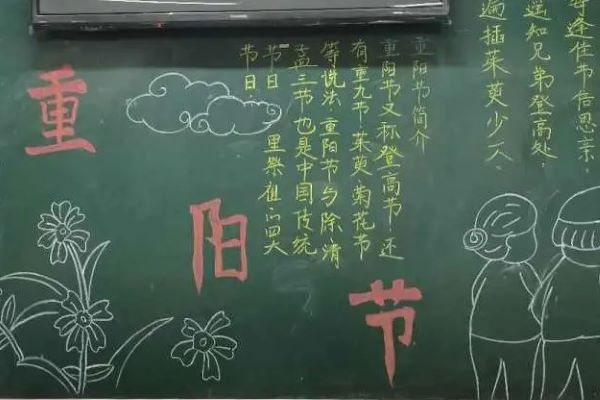 逢佳节倍思亲，
遥知兄弟登高处，
遍插茱萸少一人。
重阳节简介
重阳节又称登高节、还
有重九节 茱萸 菊花节
等说法 重阳节与除清
盂三节也是中国传统
节日 里祭祖的四大
节日
重
阳
节